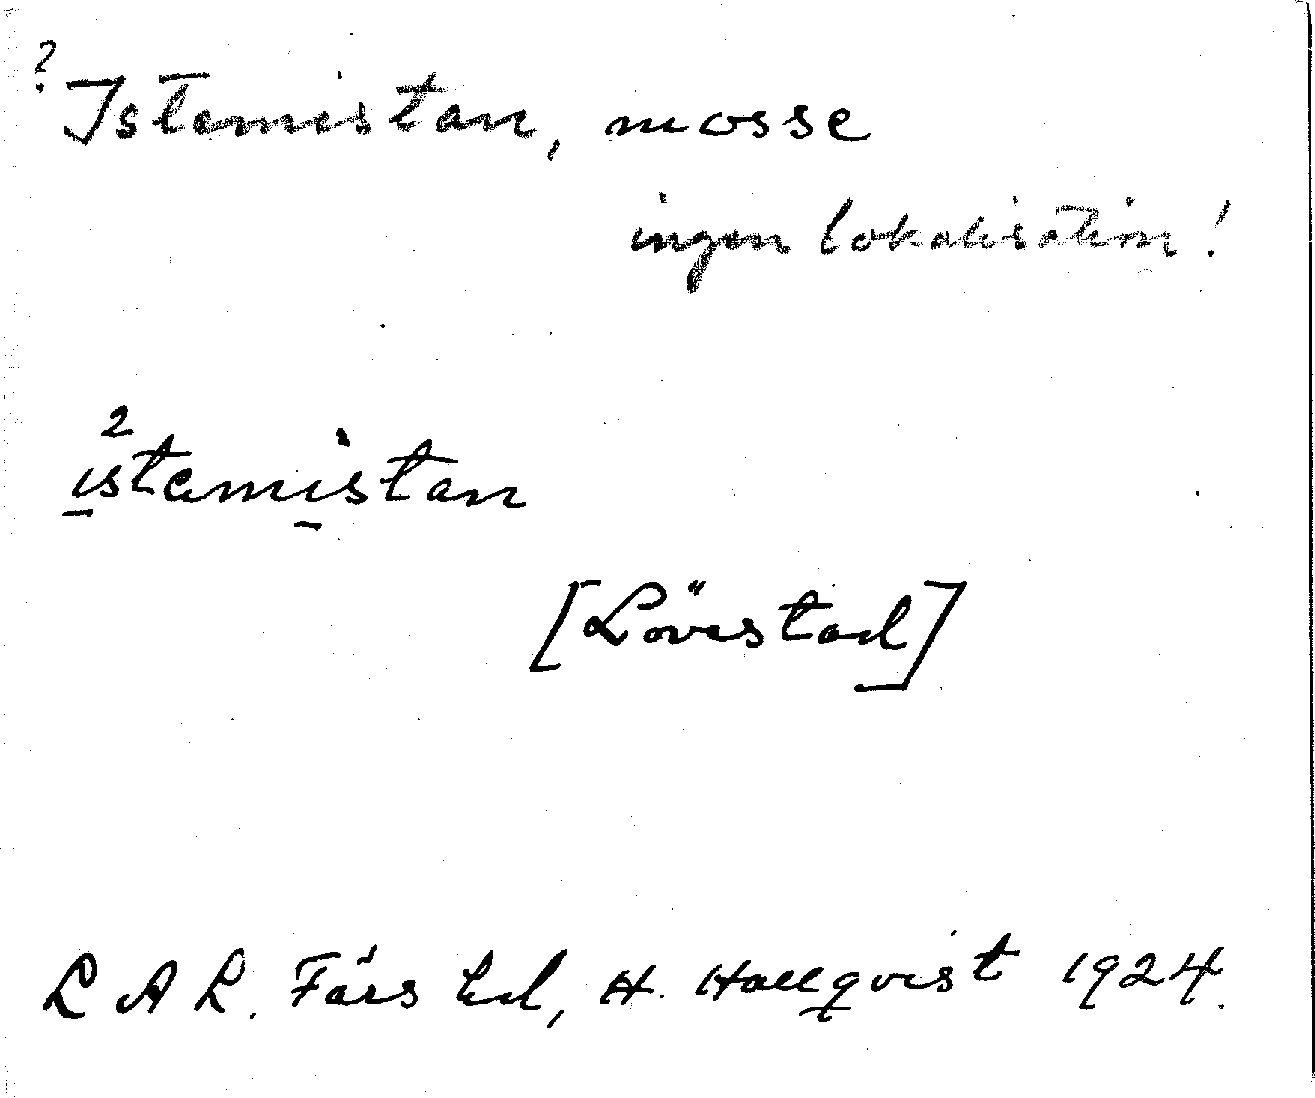 ? Istamistan, mosse
ingen lokalisation!
2
istamistan
[Lövestad]
L A L. Färs hd, H. Hallqvist 1924.